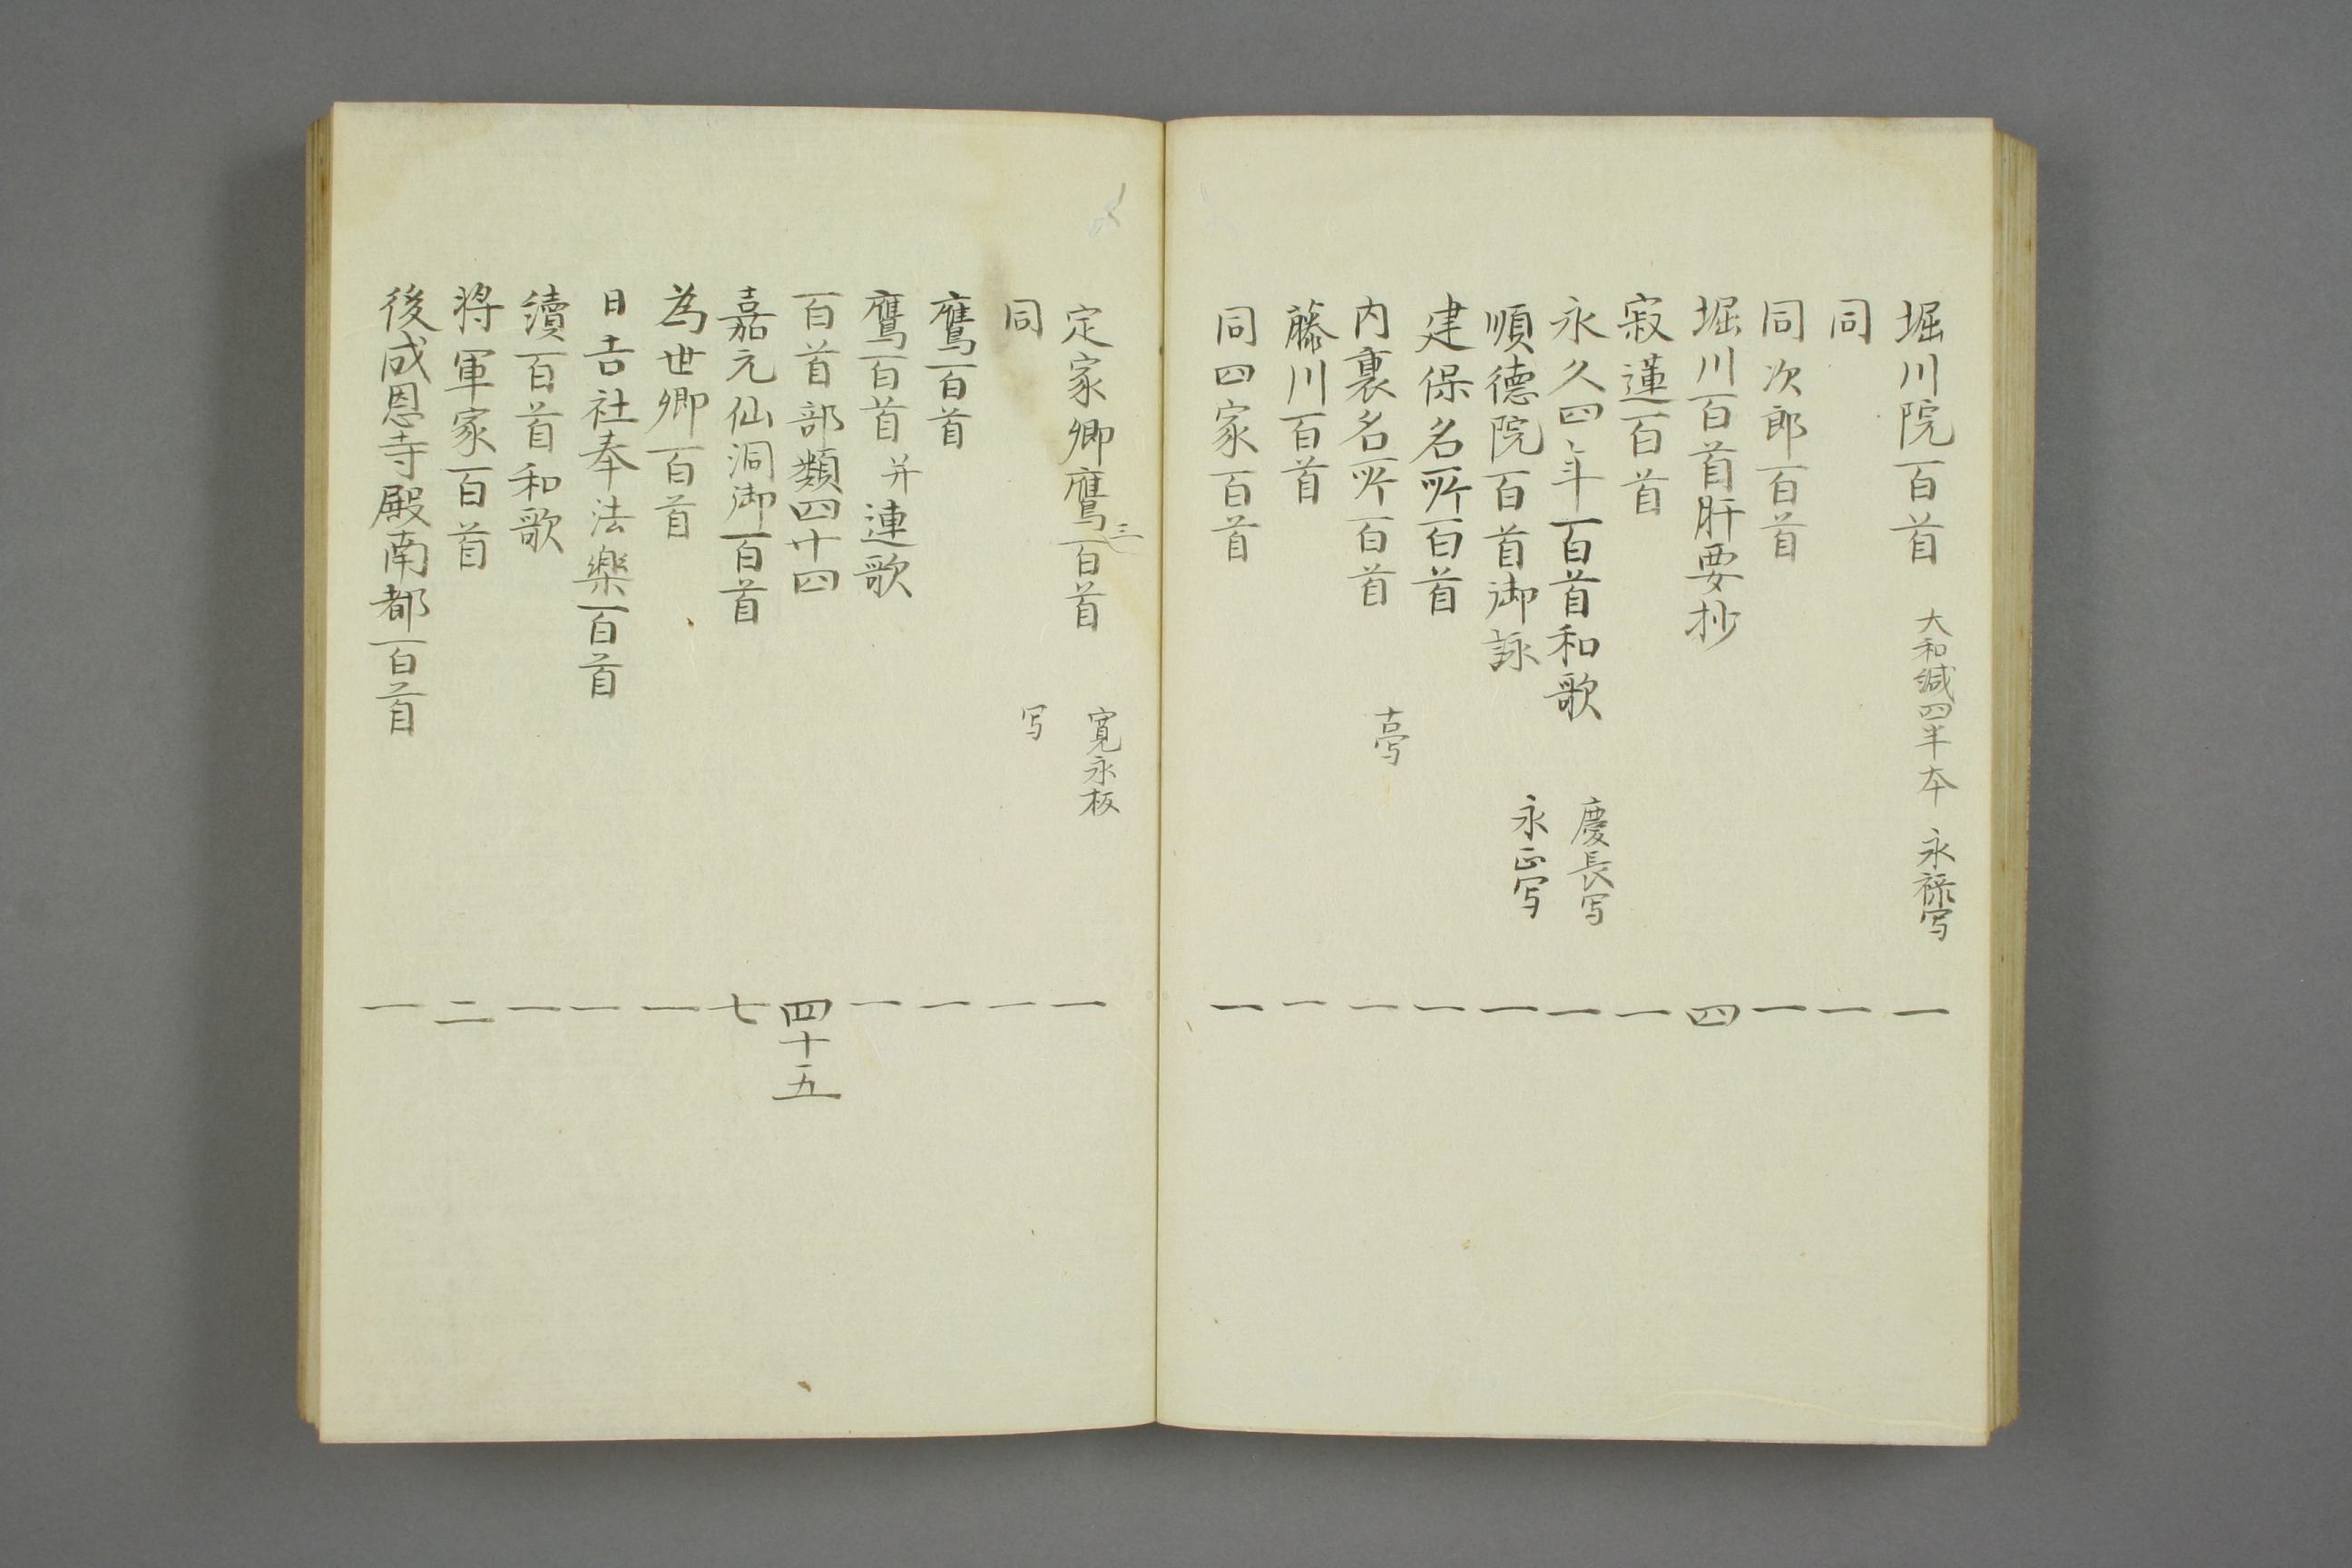 堀川院百首 大和綴四半本 永禄写 一
同 一
同次郎百首 一
堀川百首肝要抄 四
寂蓮百首 一
永久四年百首和歌 慶長写 一
順徳院百首御詠 永正写 一
建保名所百首 一
内裏名所百首 古写 一
藤川百首 一
同四家百首 一
定家卿鷹三百首 寛永板 一
同 写 一
鷹百首 一
鷹百首并連歌 一
百首部類四十四 四十五
嘉元仙洞御百首 七
為世卿百首 一
日吉社奉法楽百首 一
續百首和歌 一
将軍家百首 二
後成恩寺殿南都百首 一